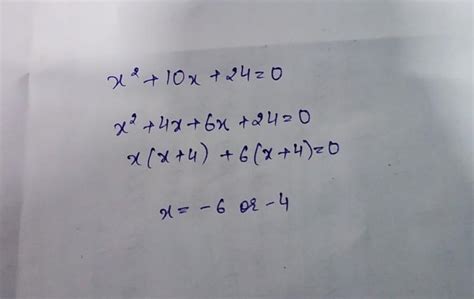 x² + 10x + 24 = 0
x² + 4x + 6x + 24 = 0
x(x+4) + 6(x+4) = 0
x = -6 or -4